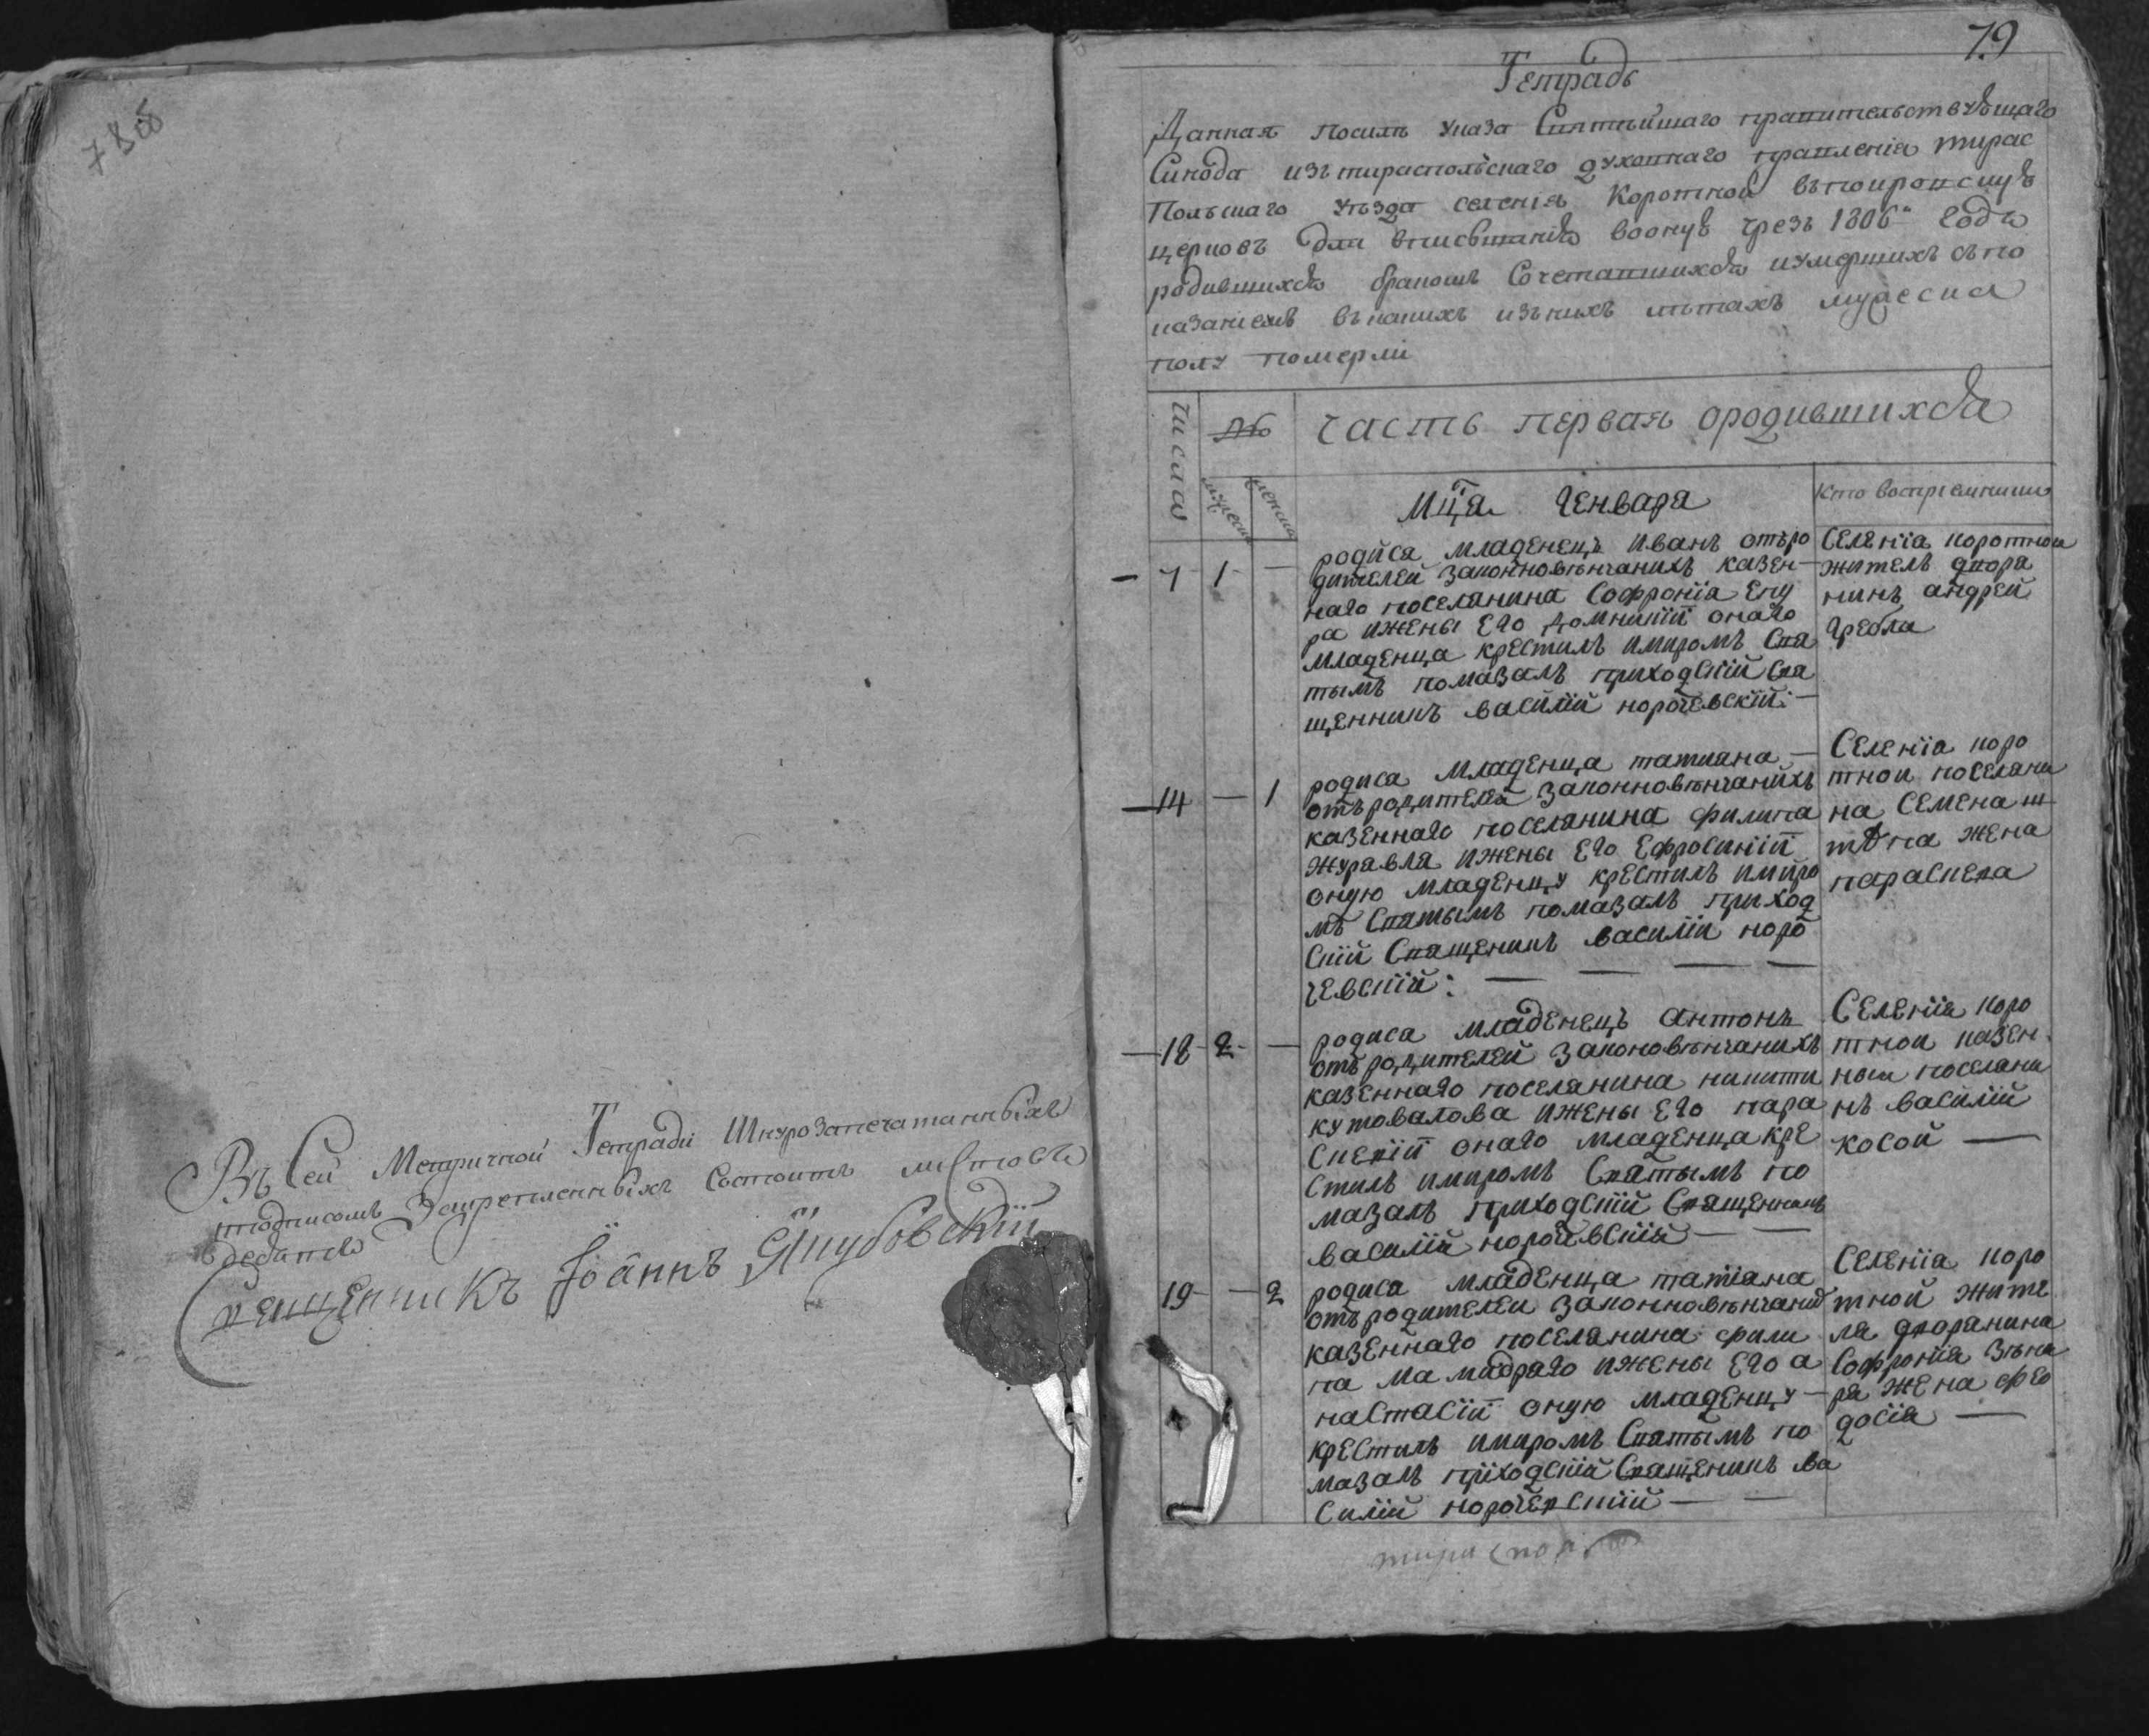 78об
Въ Сей Метричной Тетради Шнурозапечатанныхъ
подписомъ Закрепленныхъ Состоитъ листовъ
девять
Священникъ Іоаннъ Якубовскій
79
Тетрадь
Данная посилѣ указа Святѣйшаго правительствующаго
Синода изътираспольскаго духовнаго правленія тирас
польскаго уѣзда селенія Коротной въпокровскую
церковъ для вписыванія воону чрезъ 1806й годъ
родившихся бракомъ Сочетавшихся иумершихъ съпо
казаніемъ въкакихъ изънихъ лѣтахъ мужеска
полу померли
числа
№
часть первая ородившихся
мужеска
женска
Мца Генваря
Кто воспріемники
родися младенецъ иванъ отъро
дителей законновѣнчанихъ казен
7 1 —
наго поселянина Софронія
ра ижены его домникіи онаго
младенца крестилъ имиромъ Свя
тымъ помазалъ приходскій Свя
щенникъ василій корчевскій:—
Селенія коротной
житель дворя
нинъ андрей
гребла
14 — 1
родися младенца татиана —
отъродителей законновѣнчанихъ
казеннаго поселянина филипа
журавля ижены его Ефросиніи
оную младенцу крестилъ имиро
мъ Святымъ помазалъ приход
скій Священикъ василіи кор
чевскій: —
Селенія коро
тнои поселяни
на Семена
жена
параскева
18 2 —
родися младенецъ антонъ
отъродителей законовѣнчанихъ
казеннаго поселянина никити
кутовалова ижены его пара
скевіи онаго младенца кре
стилъ имиромъ Святымъ по
мазалъ приходскій Священникъ
василій корчевскій —
Селенія коро
тнои казен
ныи поселяни
нъ василій
косой —
19 — 2
родися младенца татіана
отъродителеи законновѣнчаних
казеннаго поселянина фили
па мамадраго ижены его а
настасіи оную младенцу —
крестилъ имиромъ Святымъ по
мазалъ приходскій Священикъ ва
силій корчевскій —
Селенія коро
тной жите
ля дворянина
Софронія
ра жена фео
досія —